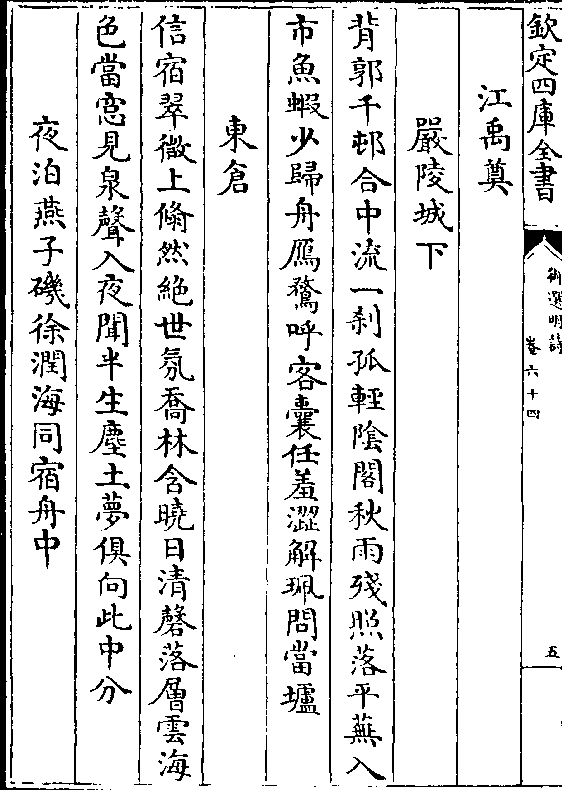 欽定四庫全書
御選明詩
卷六十四
五
江禹奠
嚴陵城下
背郭千邨合中流一剎孤輕陰閣秋雨殘照落平蕪入
市魚蝦少歸舟鴈鶩呼客囊任羞澀解珮問當壚
東倉
信宿翠微上翛然絕世氛喬林含曉日清磬落層雲海
色當窓見泉聲入夜聞半生塵土夢俱向此中分
夜泊燕子磯徐潤海同宿舟中